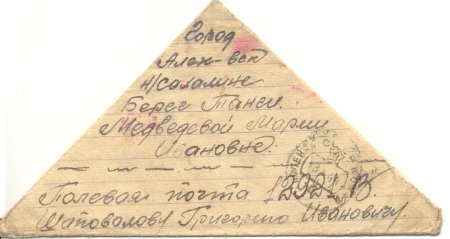 Город
Алек-вск
н/сахалине
Берег Танги.
Медведевой Марии
Ивановне.
Полевая почта 1
Шаповалову Григорию Ивановичу.